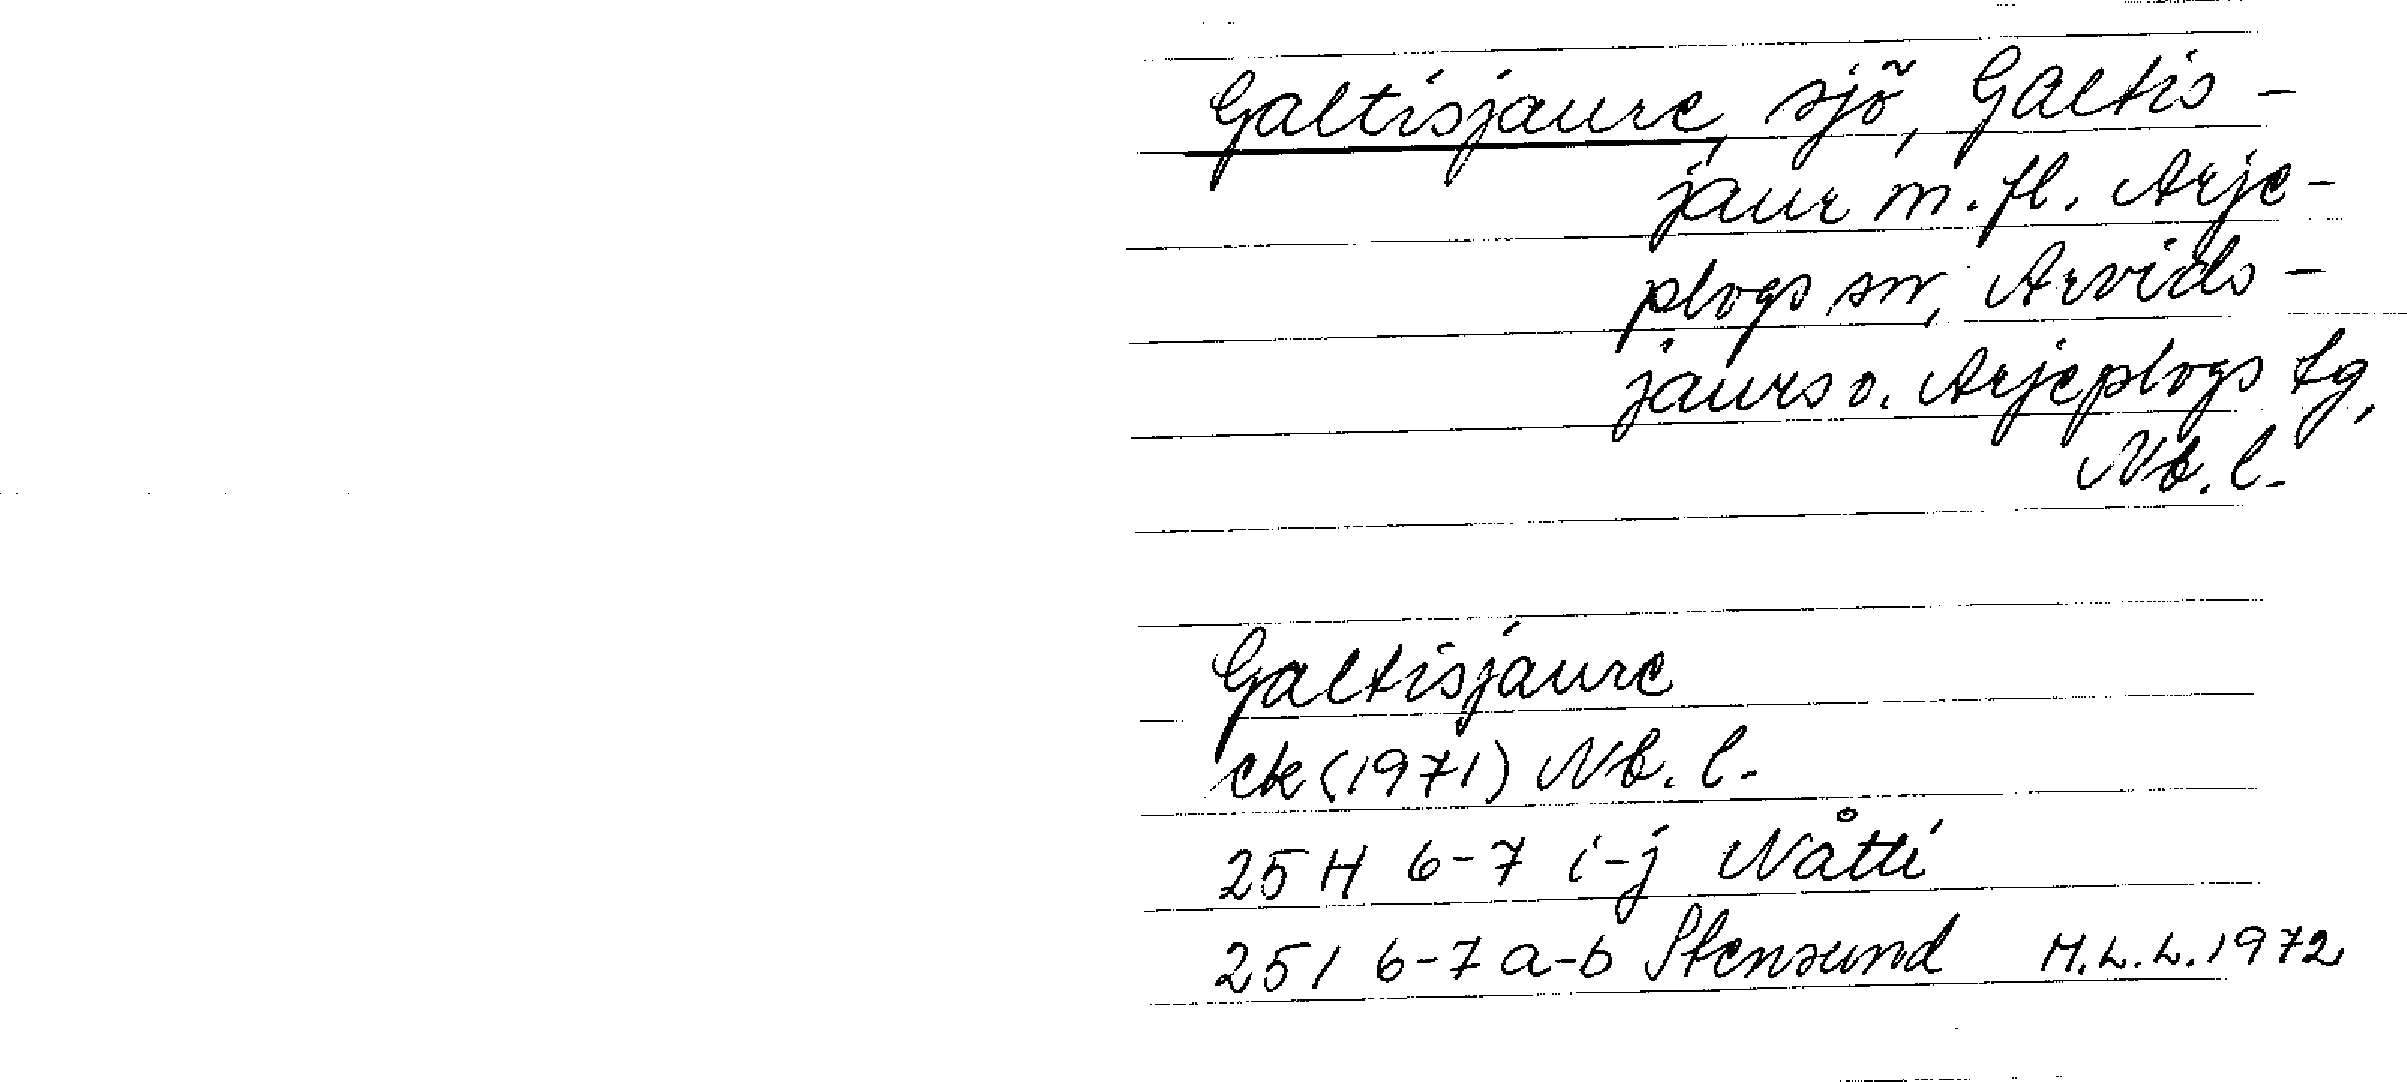 Galtisjaure, sjö, Galtis-
jaur m.fl. Arje-
plogs sn, Arvids-
jaurs o. Arjeplogs tg,
Nb.l.
Galtisjaure
ek (1971) Nb.l.
25 H 6-7 i-j Nåtti
25 I 6-7 a-b Stensund H.L.L. 1972